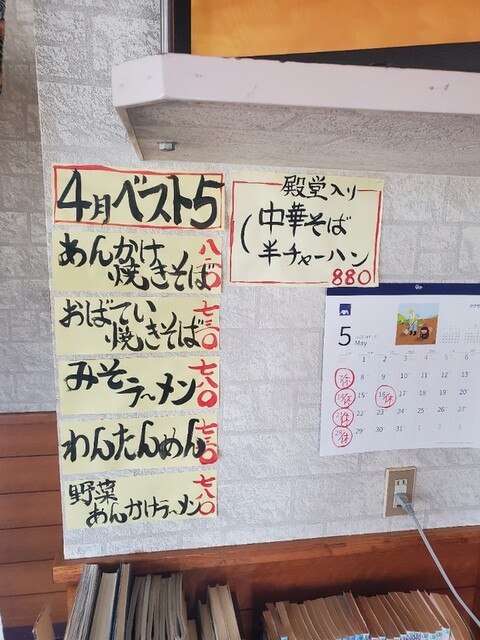 4月ベスト5
あんかけ
焼きそば
八一〇
おばてい
焼きそば
七三〇
みそ
ラーメン
七八〇
わんたんめん
七三〇
野菜
あんかけラーメン
七八〇
殿堂入り
中華そば
半チャーハン
880
AXA
5
May
1 2 3 4 5 6
7 休 8 9 10 11 12 13
14 休 15 16 休 17 18 19 20
21 休 22 23 24 25 26 27
28 休 29 30 31